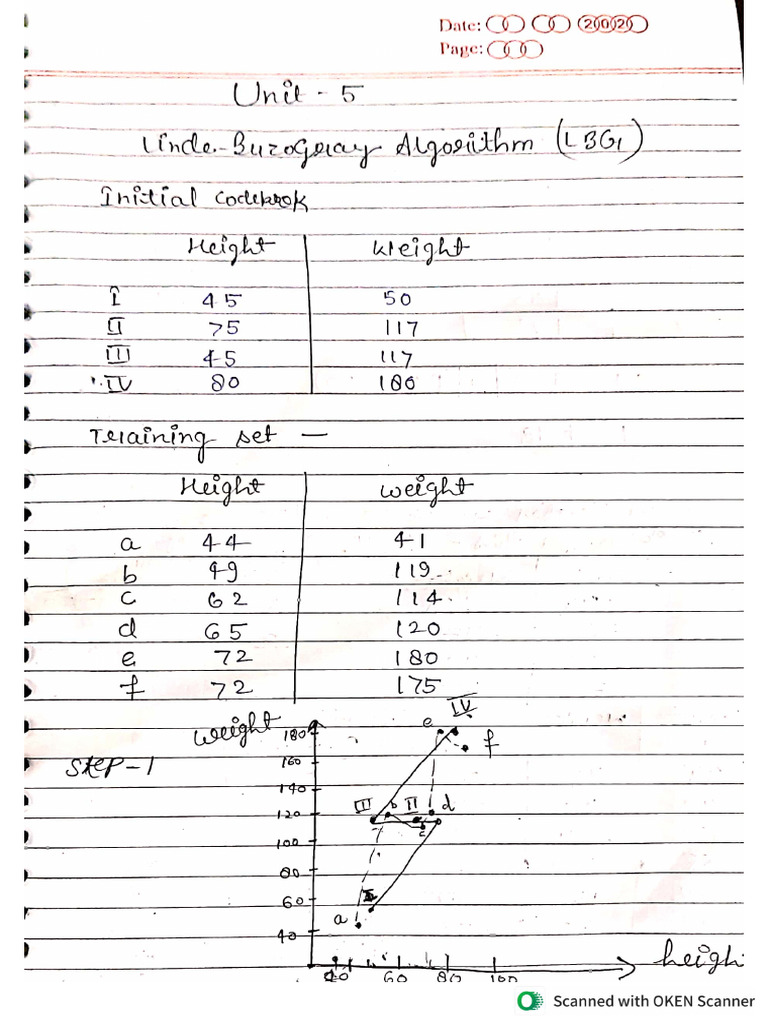 Date: 20020
Page:
Unit - 5
Linde-BuzoGray Algorithm (LBG)
Initial Codebook
Height Weight
I 45 50
II 75 117
III 45 117
IV 80 180
Training set —
Height Weight
a 44 41
b 49 119
c 62 114
d 65 120
e 72 180
f 72 175
Weight
STEP-1
e IV
180
f
160
140
III b II d
120
c
100
80
60 I
a
40
40 60 80 100
heigh
Scanned with OKEN Scanner